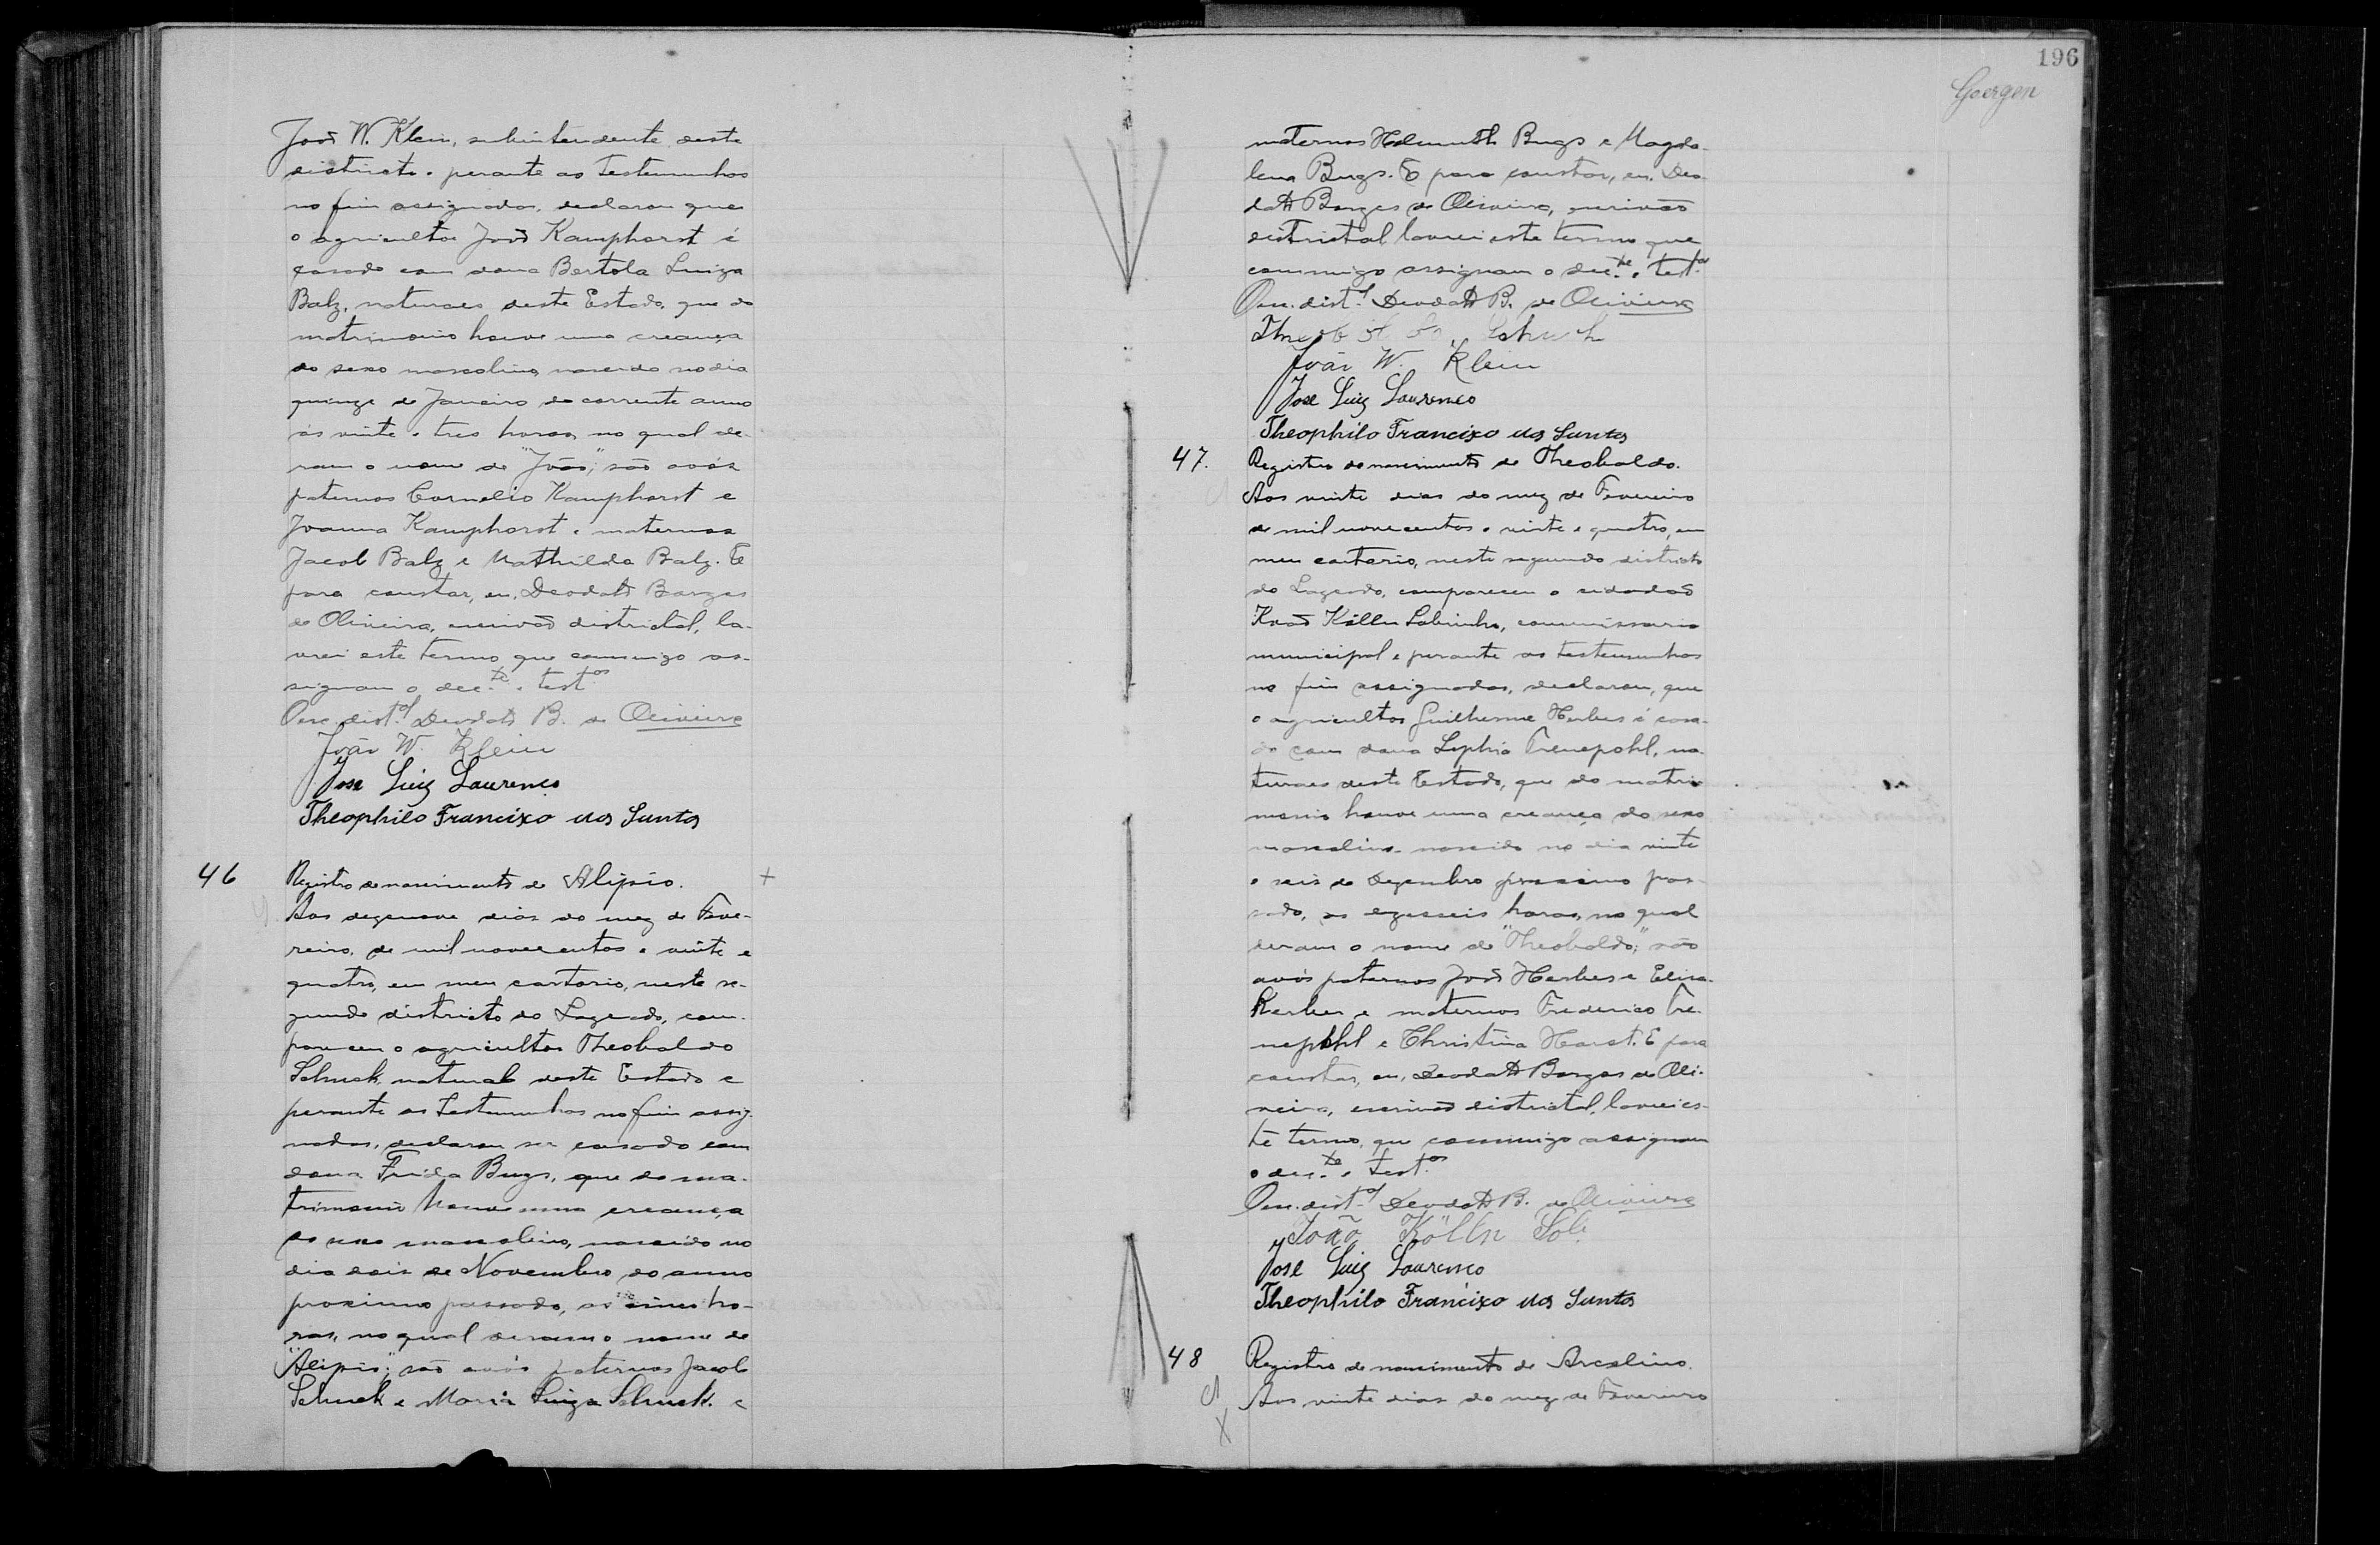 João W. Klein, subintendente deste
districto e perante as testemunhas
no fim assignadas, declarou que
o agricultor João Kamphorst é
casado com dona Bertola Luiza
Balz, naturaes deste Estado, que do
matrimonio houve uma creança
do sexo masculino, nascido no dia
quinze de Janeiro do corrente anno
ás vinte e tres horas, no qual de-
ram o nome de "João;" são avós
paternos Cornelio Kamphorst e
Joanna Kamphorst e maternos
Jacob Balz e Mathilda Balz. E
para constar, eu, Deodato Borges
de Oliveira, escrivão districtal, la-
vrei este termo que commigo as-
signam o dec.te e test.as
Deodato B. de Oliveira
João W. Klein
Jose Luiz Lourenco
Theophilo Francisco dos Santos
46
Registro de nascimento de Alipio.
Aos dezenove dias do mez de Feve-
reiro, de mil novecentos e vinte e
quatro, em meu cartorio, neste se-
gundo districto do Lageado, com-
pareceu o agricultor Theobaldo
Schuck, natural deste Estado e
perante as testemunhas no fim assig-
nadas, declarou ser casado com
dona Frida Bugs, que do ma-
trimonio houve uma creança
do sexo masculino, nascido no
dia dois de Novembro do anno
proximo passado, as cinco ho-
ras, no qual deram o nome de
"Alipio;" são avós paternos Jacob
Schuck e Maria Luiza Schuck e
196
Goergen
maternos Helmuth Bugs e Magda-
lena Bugs. E para constar, eu, Deo-
dato Borges de Oliveira, escrivão
districtal lavrei este termo que
commigo assignam o dec.te e test.as
Deodato B. de Oliveira
Schuck
João W. Klein
Jose Luiz Lourenco
Theophilo Francisco dos Santos
47.
Registro de nascimento de Theobaldo.
Aos vinte dias do mez de Fevereiro
de mil novecentos e vinte e quatro, em
meu cartorio, neste segundo districto
do Lageado, compareceu o cidadão
João Kölln Sobrinho, commissario
municipal e perante as testemunhas
no fim assignadas, declarou, que
o agricultor Guilherme Herbes é casa-
do com dona Sophia Trenepohl, na-
turaes deste Estado, que do matri-
monio houve uma creança do sexo
masculino nascido no dia vinte
e seis de Dezembro proximo pas-
sado, as dezeseis horas, no qual
deram o nome de "Theobaldo;" são
avós paternos João Herbes e Elisa
Herbes e maternos Frederico Tre-
nepohl e Christina Horst. E para
constar, eu, Deodato Borges de Oli-
veira, escrivão districtal, lavrei es-
te termo, que commigo assignam
o dec.te e test.as
Deodato B. de Oliveira
João Kölln Sob.
Jose Luiz Lourenco
Theophilo Francisco dos Santos
48
Registro de nascimento de Arcelino.
Aos vinte dias do mez de Fevereiro